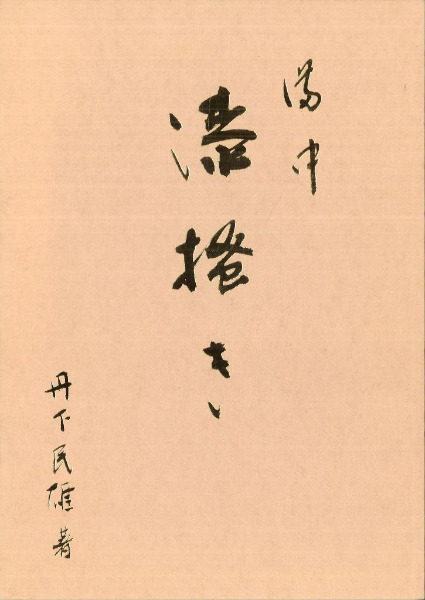 備中
漆掻き
丹下民雄著